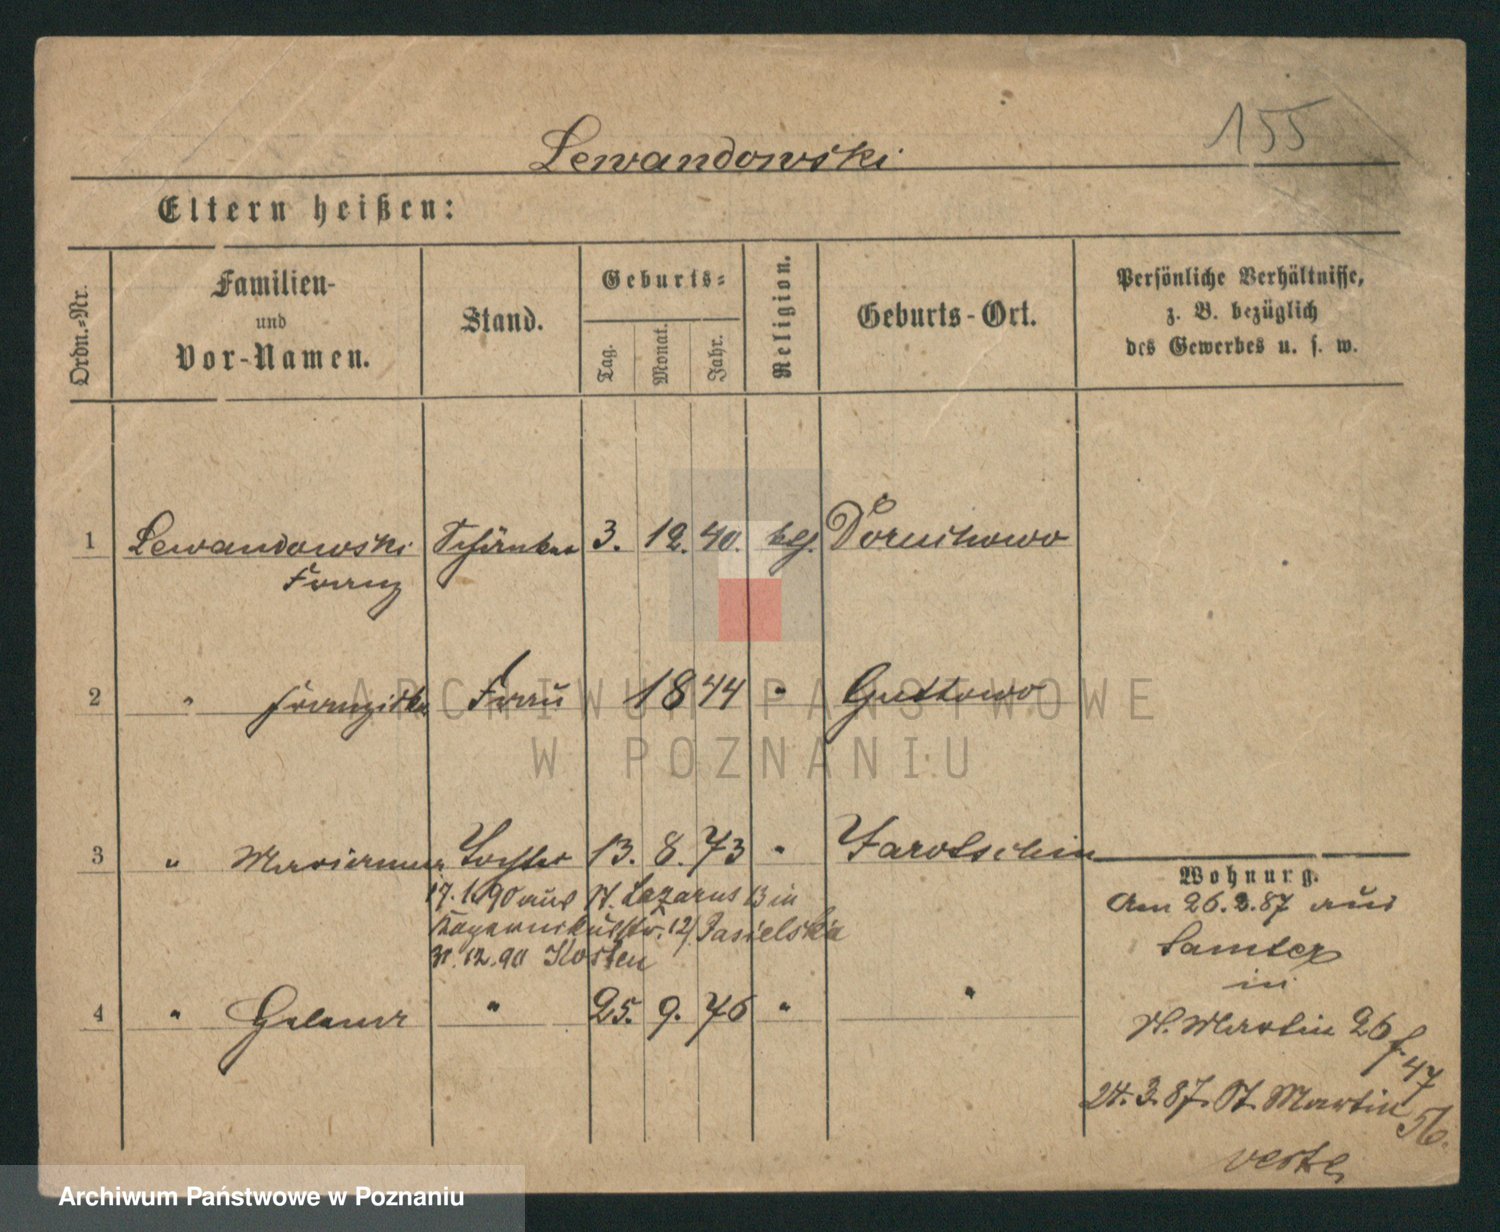 155
Lewandowski
Eltern heißen:
Ordn.=Nr.
Familien-
und
Vor-Namen.
Stand.
Geburts=
Tag.
Monat.
Jahr.
Religion.
Geburts-Ort.
Persönliche Verhältnisse,
z. B. bezüglich
des Gewerbes u. s. w.
1 Lewandowski Schänker 3. 12. 40. kth. Dornchowo
Franz
2 " Franziska Frau 1844 " Guttowo
3 " Marianna Tochter 13. 8. 73 " Jarotschin
17. 1. 90 aus St. Lazarus 13 in
12 Jasielska
31. 12. 90 Kosten
4 " Helena " 25. 9. 76 " "
Wohnung.
Am 26. 3. 87 aus
Samter
in
St. Martin 26
f. 47
24. 3. 87. St. Martin
56.
verte
ARCHIWUM PAŃSTWOWE
W POZNANIU
Archiwum Państwowe w Poznaniu